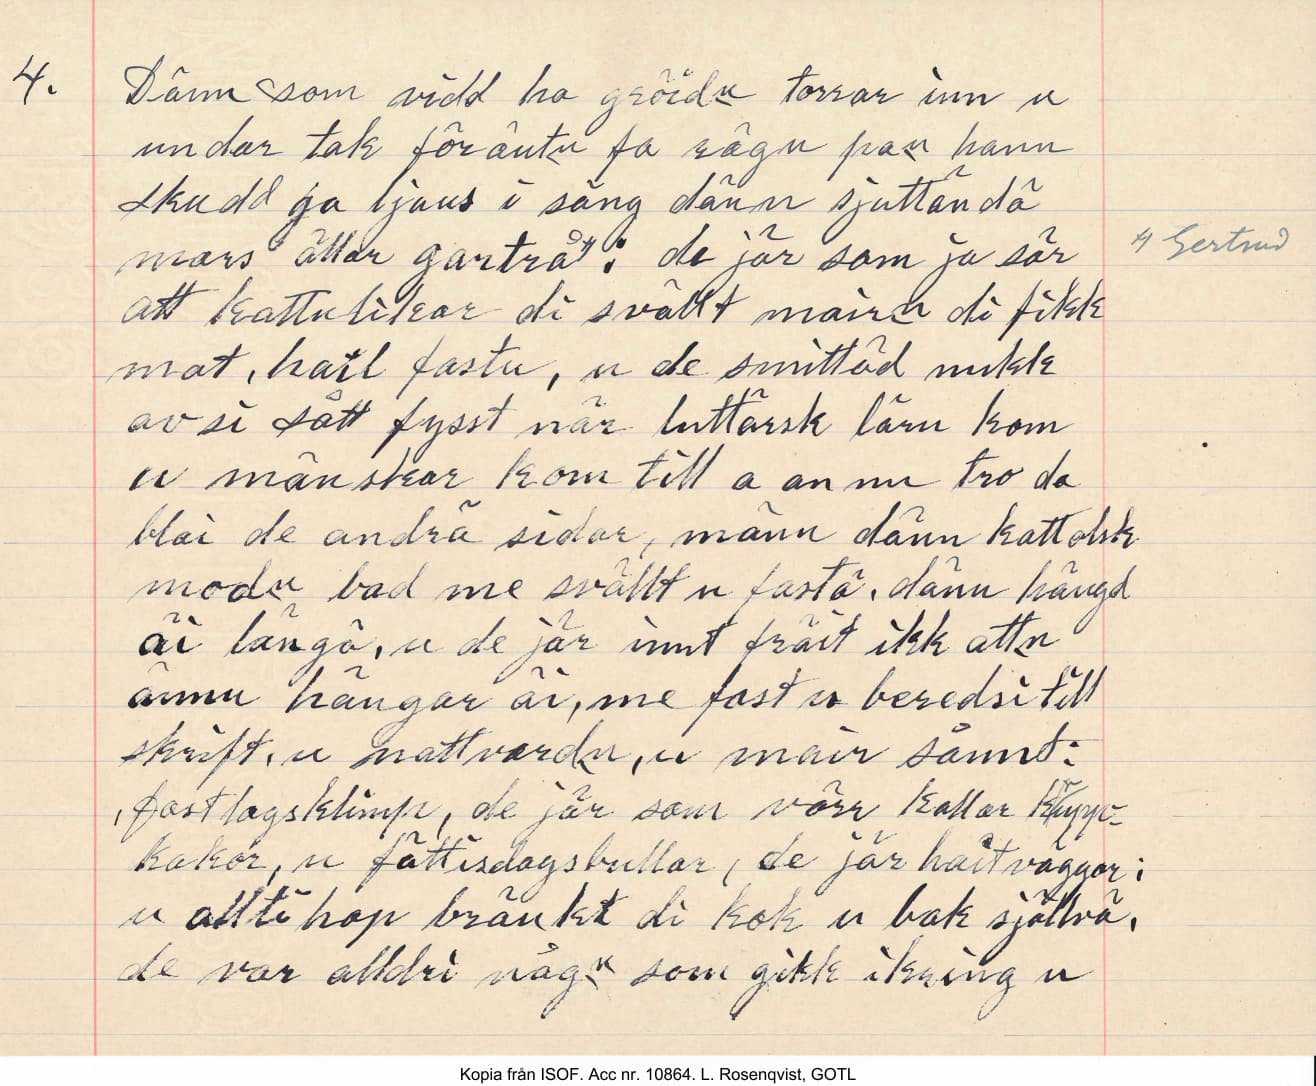 4.
Dânn som vidd ha gröidu torrar inn u
undar tak förâutu fa rägu pau hann
skudd ga ljaus i säng dänn sjuttândâ
mars ällar gartrå⁴⁾: de jär som ja sär
4) Gertrud
att kattulikar di svällt mairu di fikk
mat, hail fastu, u de smittâd nukkle
av si sått fysst när luttärsk läru kom
u mänskar kom till a annu tro da
blai de andrä sidar, männ dänn kattolsk
modu bad me svällt u fastä. dänn hängd
äi längö, u de jär innt fräit ikk attu
ännu hängar äi, me fast u beredsi till
skrift, u nattvardu, u mair sånnt:
fastlagsklimpu, de jär som vörr kallar klypp-
kakor, u fättisdagsbullar, de jär haitväggar:
u alltihop bräukt di kok u bak sjöllvä.
de var alldri någu som gikk ikring u
Kopia från ISOF. Acc nr. 10864. L. Rosenqvist, GOTL